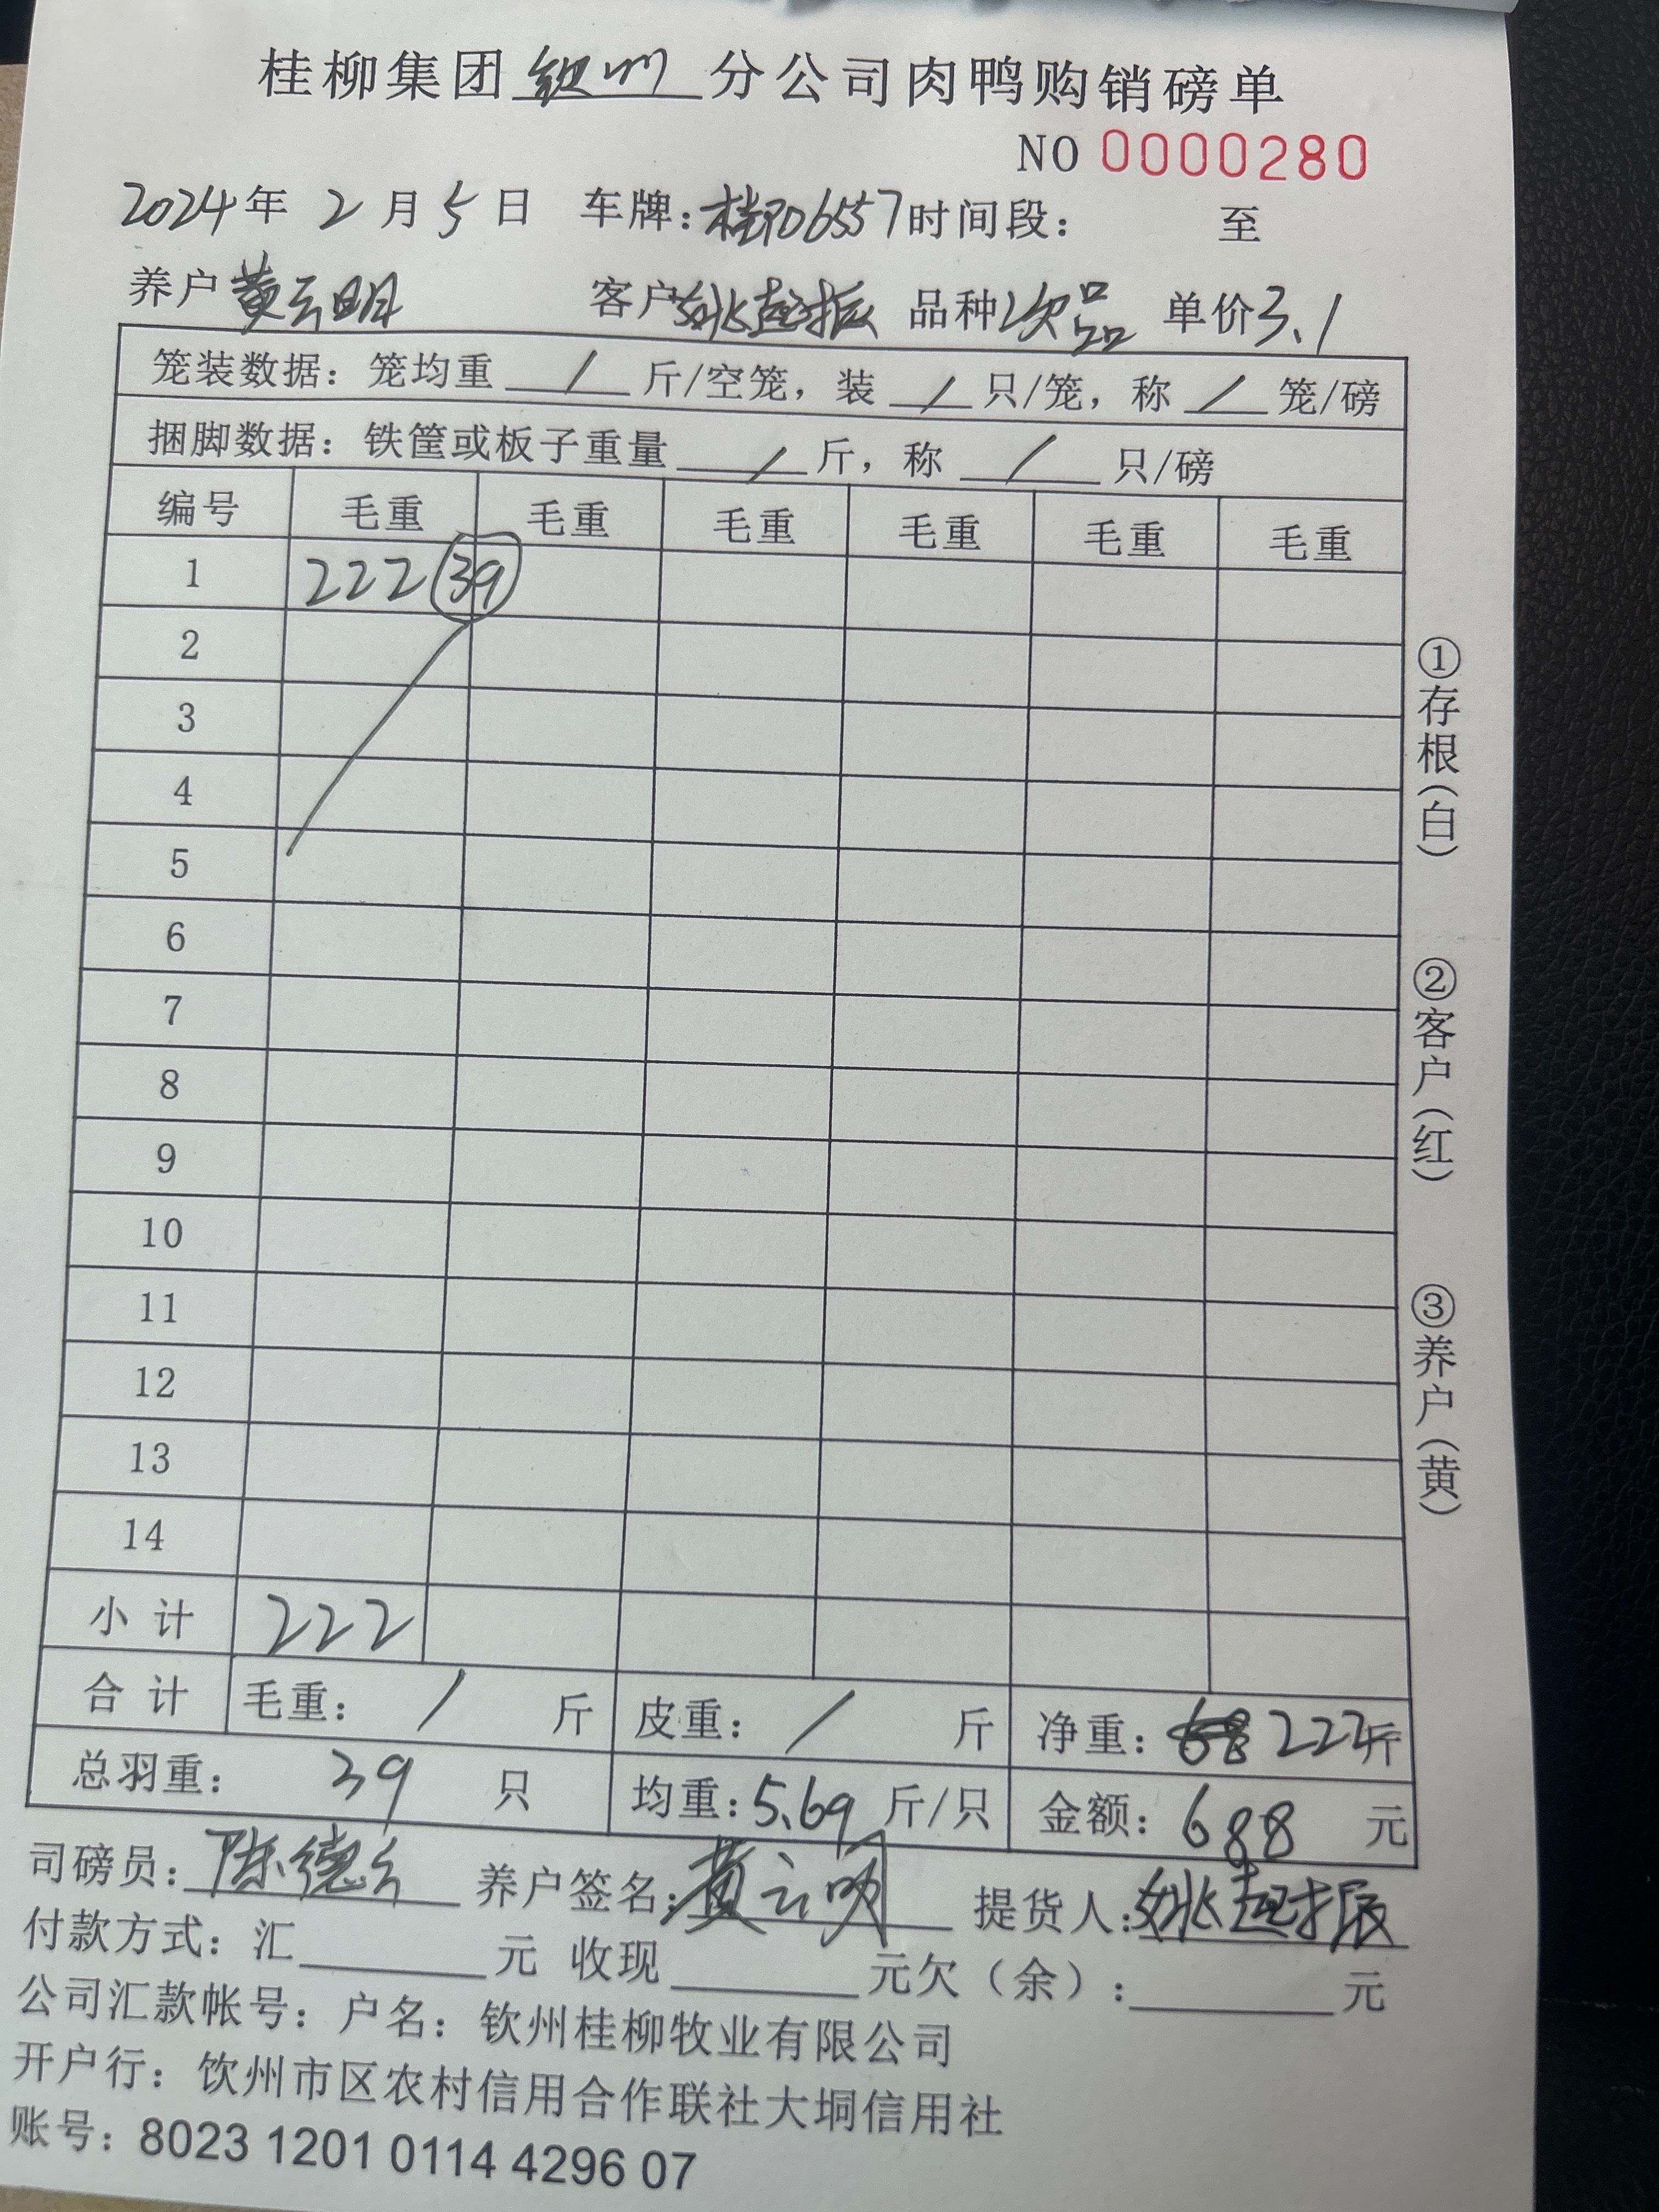 桂柳集团钦州分公司肉鸭购销磅单
NO 0000280
2024年 2月 5日 车牌：桂P06557 时间段： 至
养户 黄云明 客户 姚起振 品种 次品 单价 3.1
笼装数据：笼均重 / 斤/空笼，装 / 只/笼，称 / 笼/磅
捆脚数据：铁筐或板子重量 / 斤，称 / 只/磅
编号 毛重 毛重 毛重 毛重 毛重 毛重
1 222 39
2
3
4
5
6
7
8
9
10
11
12
13
14
小计 222
合计 毛重： / 斤 皮重： / 斤 净重： 222斤
总羽重： 39 只 均重：5.69 斤/只 金额：688 元
司磅员：陈德 养户签名：黄云明 提货人：姚起振
付款方式：汇 元 收现 元欠（余）： 元
公司汇款帐号：户名：钦州桂柳牧业有限公司
开户行：钦州市区农村信用合作联社大垌信用社
账号：8023 1201 0114 4296 07
①存根（白）
②客户（红）
③养户（黄）